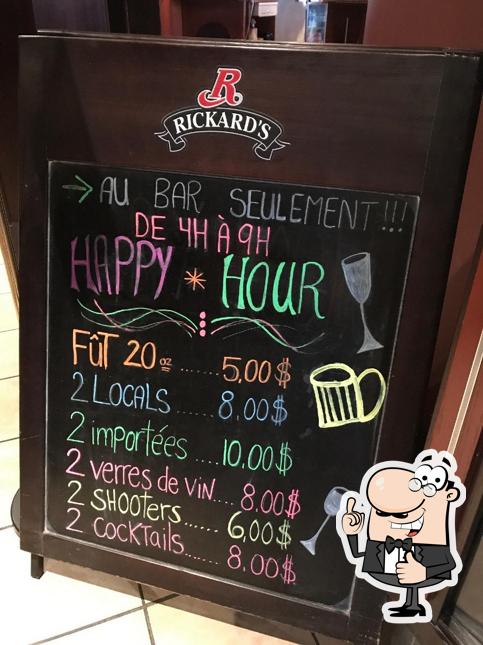 R
RICKARD'S
→ AU BAR SEULEMENT!!!
DE 4H À 9H
HAPPY * HOUR
FÛT 20 oz ...... 5,00$
2 LOCALS ...... 8.00$
2 importées .... 10.00$
2 verres de VIN... 8.00$
2 SHOOTERS...... 6,00$
2 COCKTAILS...... 8,00$